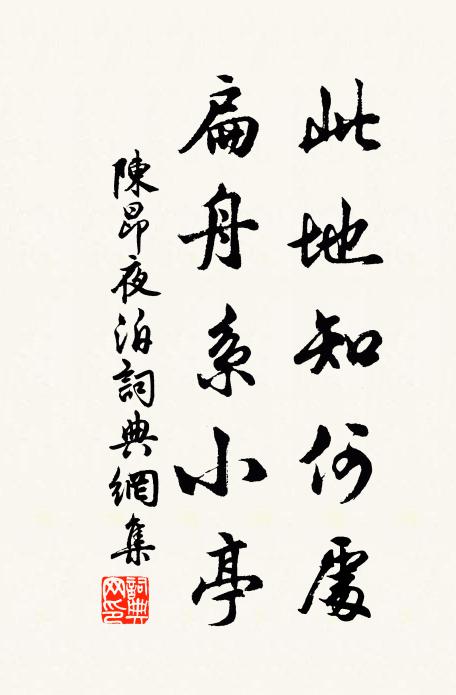 此地知何處
扁舟系小亭
陳昂夜泊詞典網集
詞典网印